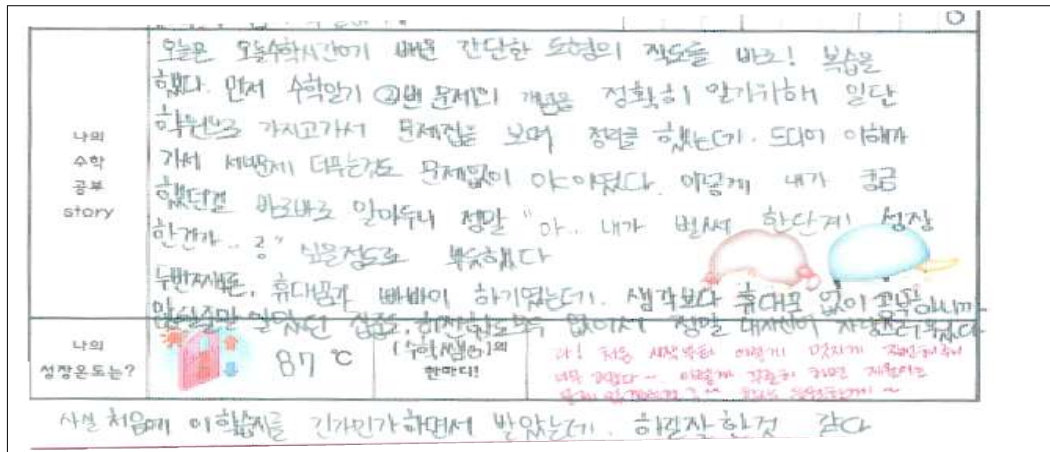 나의
수학
공부
story
오늘은 오늘수학시간에 배운 간단한 도형의 작도를 바로! 복습을
했다. 먼저 수학일기 ②번 문제의 개념을 정확히 알기위해 일단
학원으로 가지고가서 문제집을 보며 정리를 했는데. 드디어 이해가
가서 세번째 더푸는것도 문제없이 이었다. 이렇게 내가 궁금
했던걸 바로바로 알아두니 정말 "아.. 내가 벌써 한단계 성장
한건가..?" 싶을정도로 뿌듯했다
두번째로, 휴대폰과 빠빠이 하기였는데. 생각보다 휴대폰 없이 공부하니까
없어서 정말 내자신이
나의
성장온도는?
87 ℃
(수학쌤)의
한마디!
와! 처음 시작부터 이렇게 멋지게
너무 이렇게 꾸준히 하면
사실 처음에 이 학습지를 긴가민가하면서 받았는데. 하길잘한것 같다